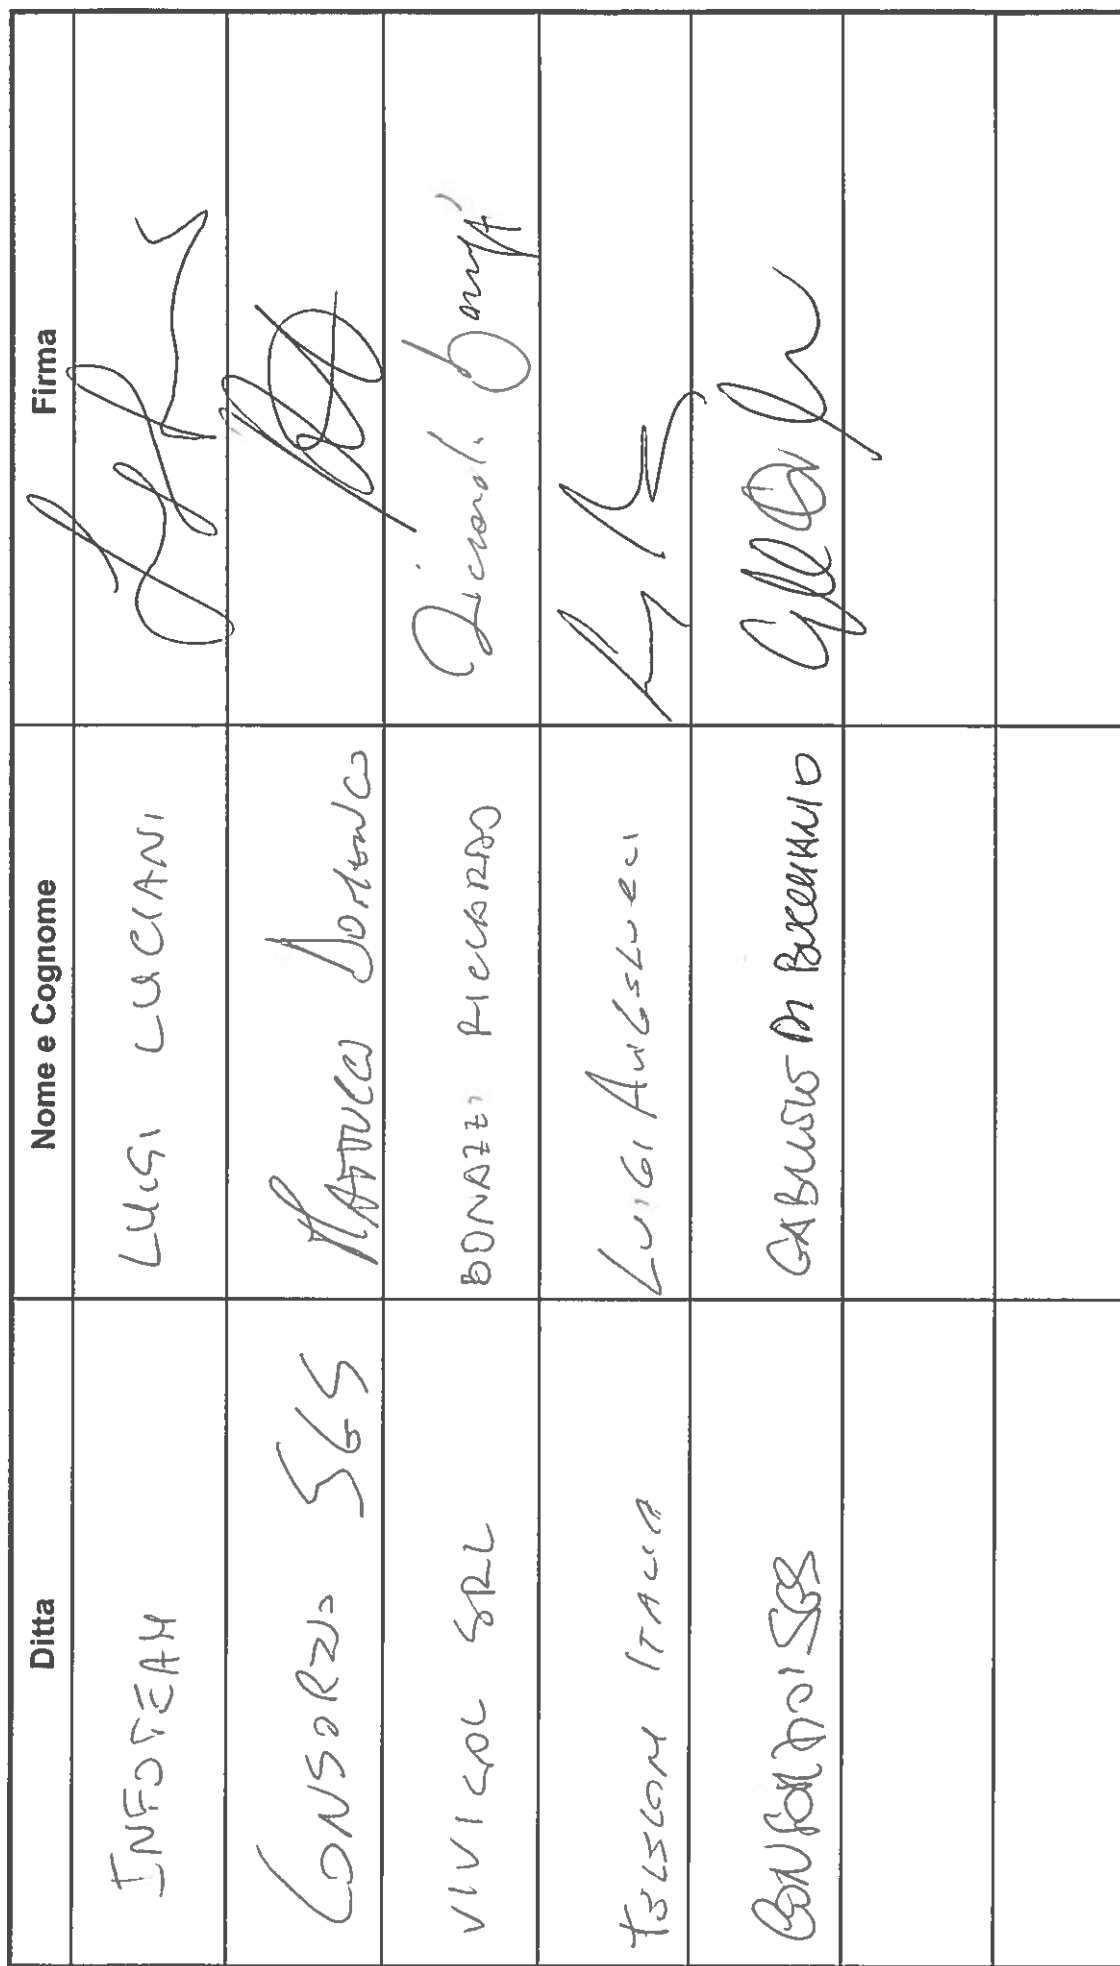 Ditta Nome e Cognome Firma
INFOTEAM LUIGI LUCIANI
CONSORZIO SGS MATTUCCI DOMENICO
VIVISOL SRL BONAZZI RICCARDO Riccardo Bonazzi
TELECOM ITALIA LUIGI ANGELUCCI
CONSORZIO SGS DI